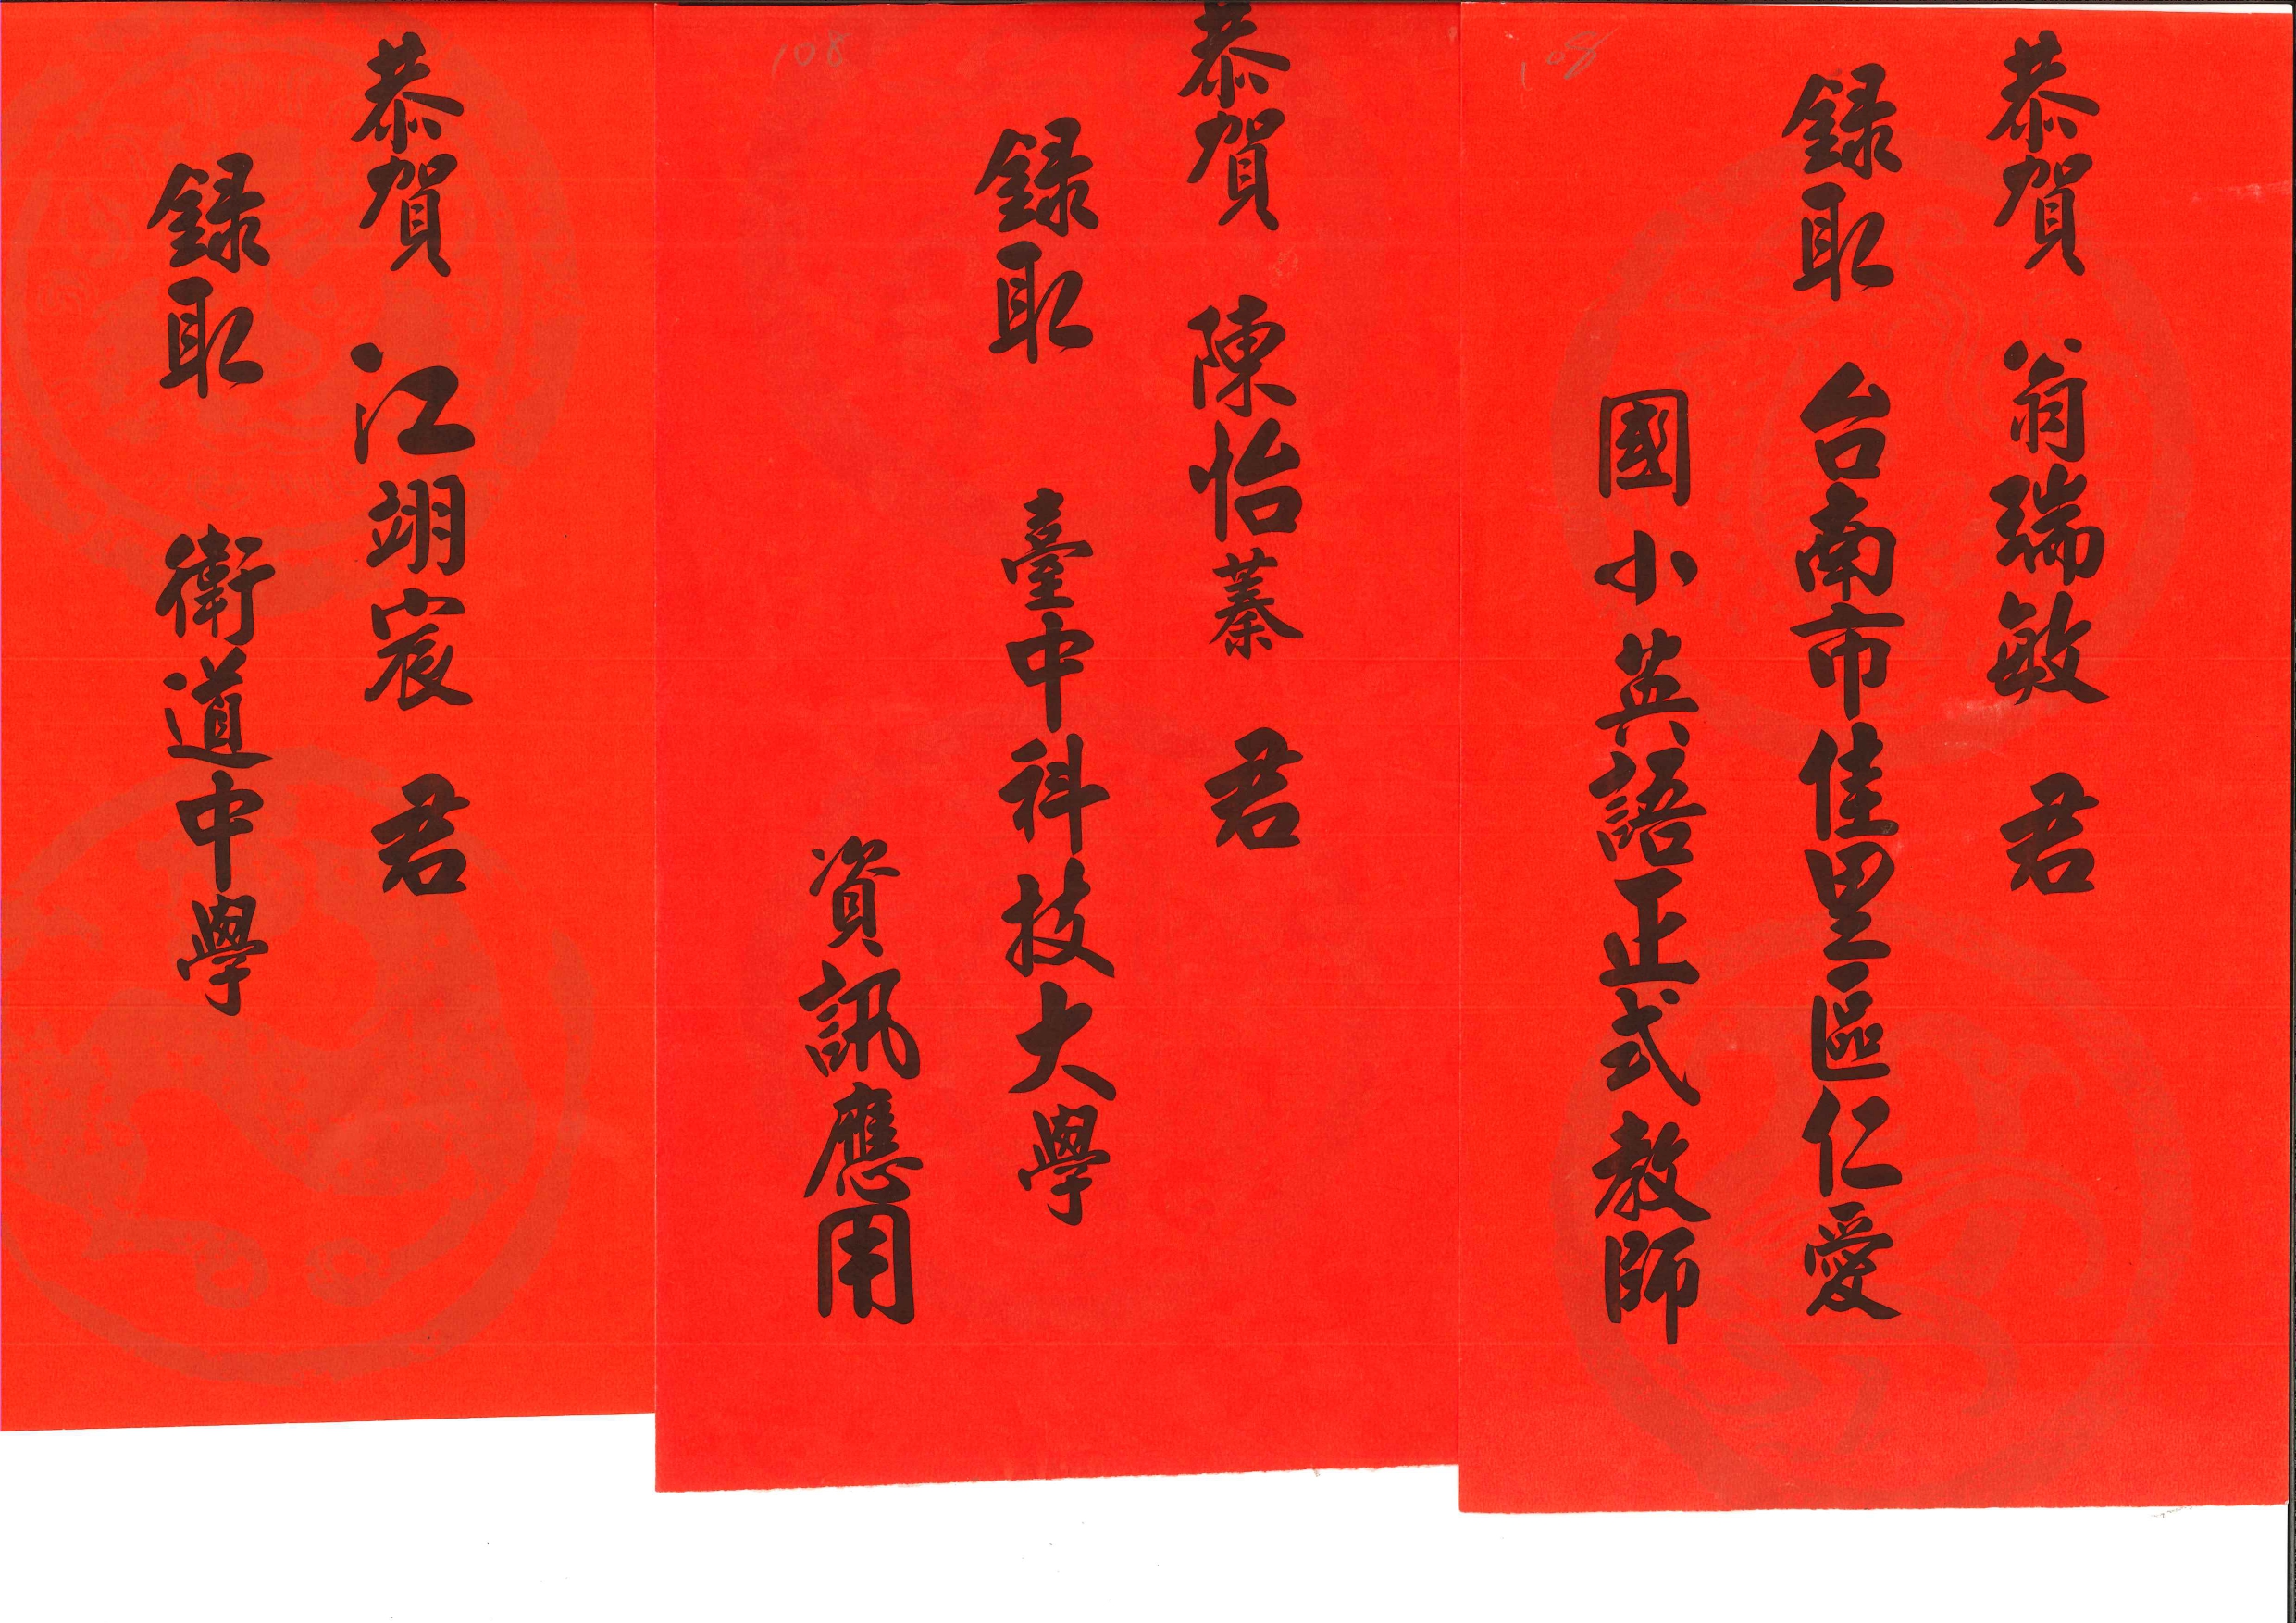 108
恭賀 翁瑞敏 君
錄取 台南市佳里區仁愛
國小英語正式教師
108
恭賀 陳怡蓁 君
錄取 臺中科技大學
資訊應用
恭賀 江翊宸 君
錄取 衛道中學